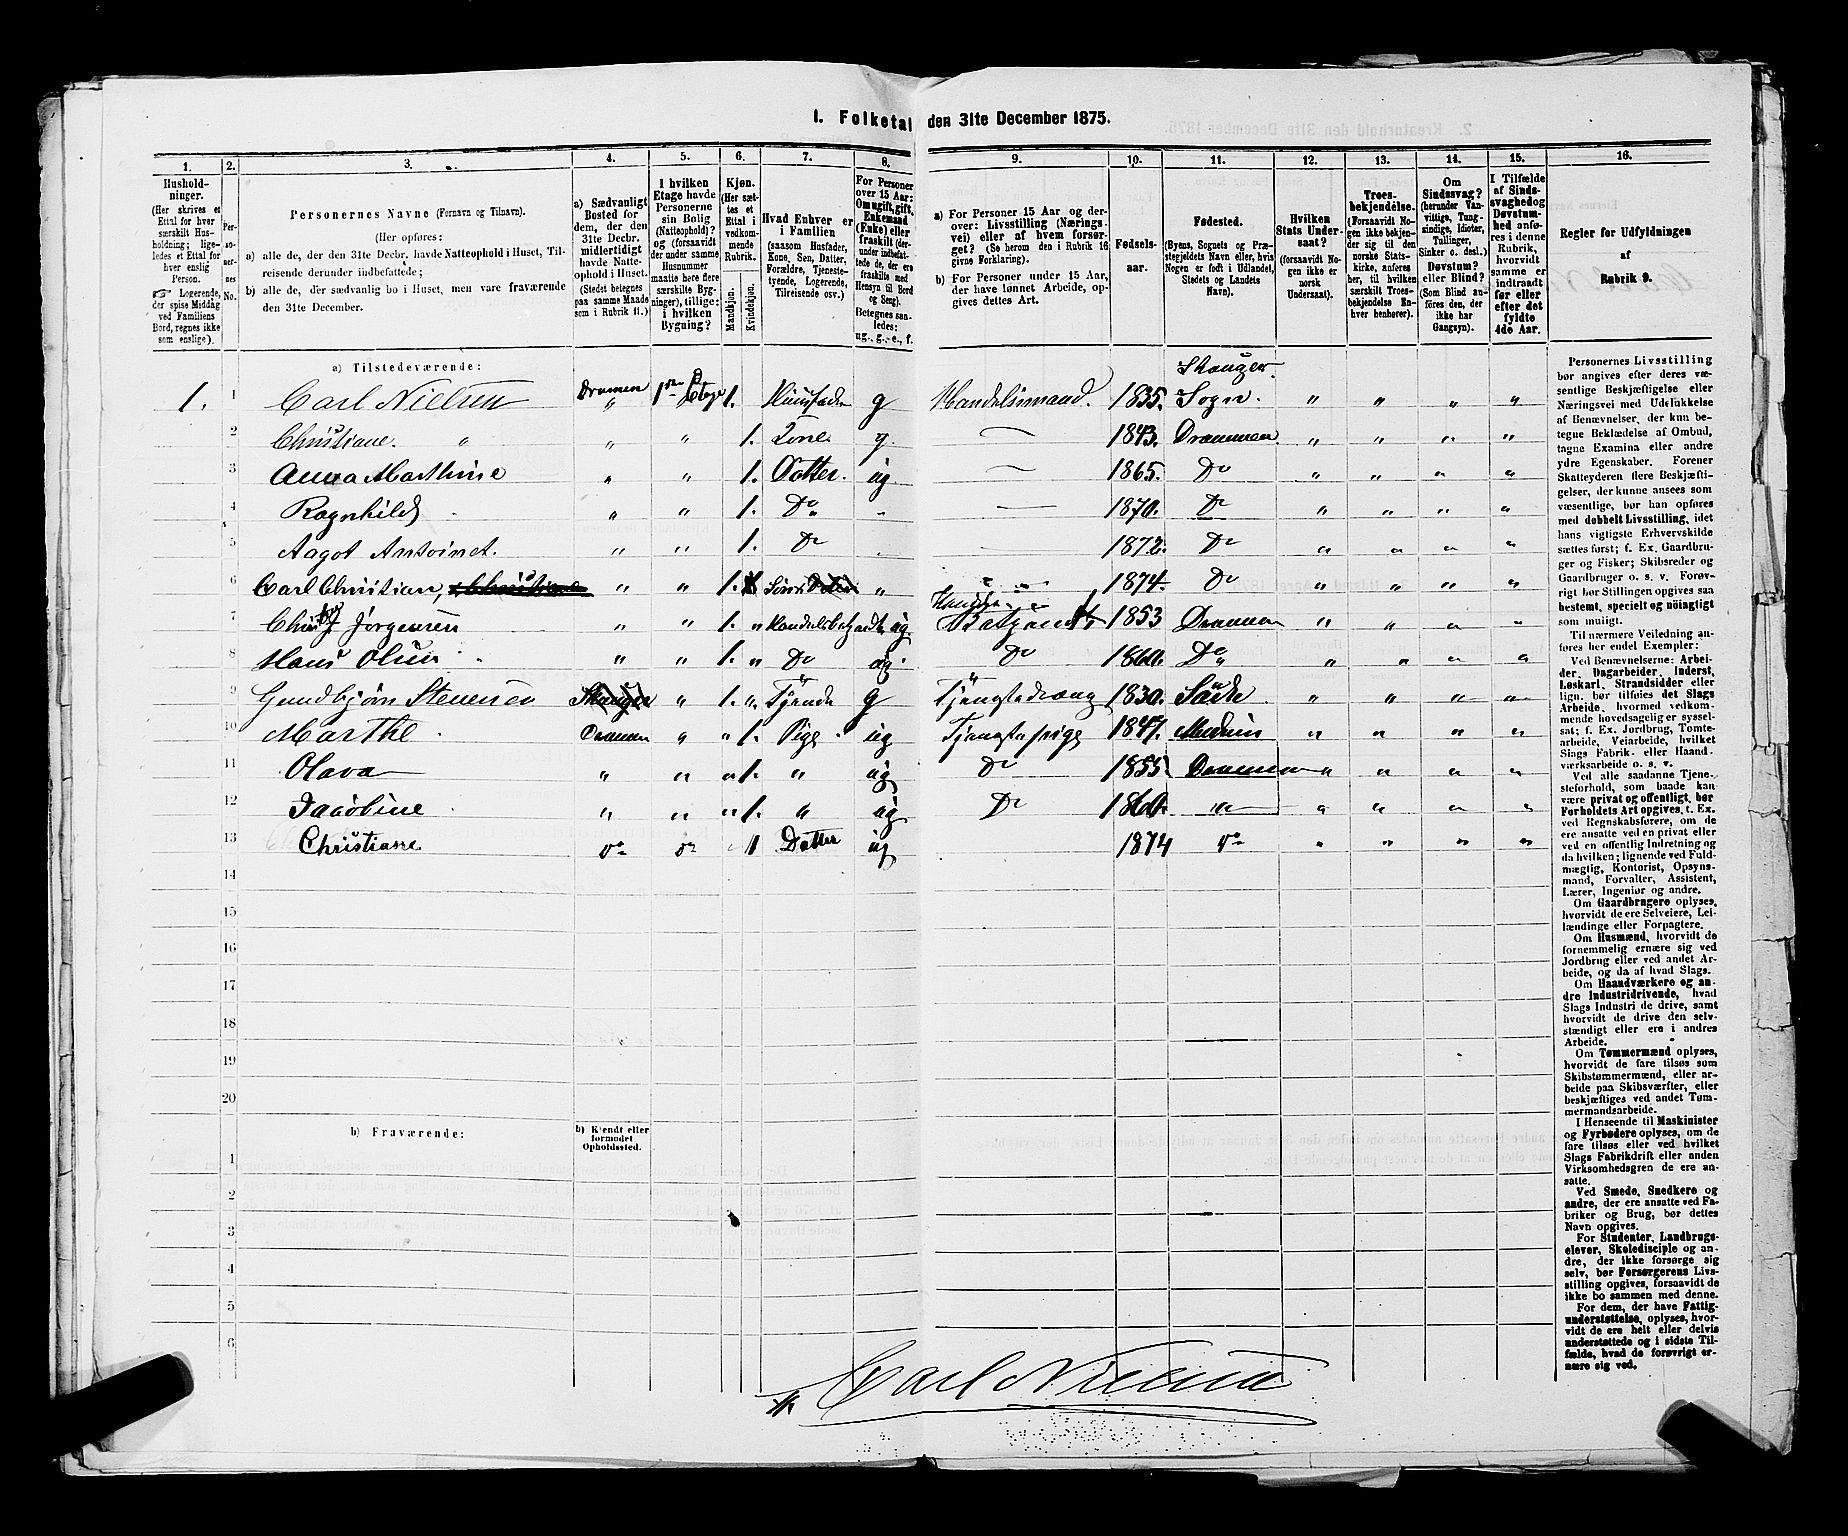 1. Folketal den 31te December 1875.
1. 2. 3. 4. 5. 6. 7. 8. 9. 10. 11. 12. 13. 14. 15. 16.
Hushold-
ninger.
(Her skrives et
Ettal for hver
særskilt Hus-
holdning; lige-
ledes et Ettal for
hver enslig
Person.
☞ Logerende,
der spise Middag
ved Familiens
Bord, regnes ikke
som enslige).
Per-
so-
ner-
nes
No.
Personernes Navne (Fornavn og Tilnavn).
(Her opføres:
a) alle de, der den 31te Decbr. havde Natteophold i Huset, Til-
reisende derunder indbefattede;
b) alle de, der sædvanlig bo i Huset, men vare fraværende
den 31te December.
a) Sædvanligt
Bosted for
dem, der den
31te Decbr.
midlertidigt
havde Natte-
ophold i Huset.
(Stedet betegnes
paa samme Maade
som i Rubrik 11.)
I hvilken
Etage havde
Personerne
sin Bolig
(Natteophold)?
og (forsaavidt
der under samme
Husnummer
maatte høre flere
særskilte Byg-
ninger), tillige:
i hvilken
Bygning?
Kjøn.
(Her sæt-
tes et
Ettal i
vedkom-
mende
Rubrik.
Mandkjøn.
Kvindekjøn.
Hvad Enhver er
i Familien
(saasom Husfader,
Kone, Søn, Datter,
Forældre, Tjeneste-
tyende, Logerende,
Tilreisende osv.)
For Personer
over 15 Aar:
Om ugift, gift,
Enkemand
(Enke) eller
fraskilt (der-
under indbefat-
tede de, der ere
fraskilte med
Hensyn til Bord
og Seng).
Betegnes saa-
ledes:
ug., g., e., f.
a) For Personer 15 Aar og der-
over: Livsstilling (Nærings-
vei) eller af hvem forsør-
get? (Se herom den i Rubrik 16
givne Forklaring).
b) For Personer under 15 Aar,
der have lønnet Arbeide, op-
gives dettes Art.
Fødsels-
aar.
Fødested.
(Byens, Sognets og Præ-
stegjeldets Navn eller, hvis
Nogen er født i Udlandet,
Stedets og Landets
Navn).
Hvilken
Stats Under-
saat?
(forsaavidt No-
gen ikke er
norsk
Undersaat).
Troes-
bekjendelse.
(Forsaavidt No-
gen ikke bekjen-
der sig til den
norske Stats-
kirke, anføres
her, til hvilken
særskilt Troes-
bekjendelse En-
hver henhører).
Om
Sindssvag?
(herunder Van-
vittige, Tung-
sindige, Idioter,
Tullinger,
Sinker o. desl.)
Døvstum?
eller Blind?
(Som Blind an-
føres den, der
ikke har
Gangsyn).
I Tilfælde
af Sinds-
svaghed og
Døvstum-
hed anfø-
res i denne
Rubrik,
hvorvidt
samme er
indtraadt
før eller
efter det
fyldte
4de Aar.
Regler for Udfyldningen
af
Rubrik 9.
a) Tilstedeværende:
Skauger
1. 1 Carl Nielsen Dramen " 1ste Etage 1. Huusfader g Handelsmand. 1835. Sogn. " " " "
2 Christiane. " " " 1. Kone g — 1843. Drammen " " " "
3 Anna Marthine " " 1. Datter. ug — 1865. Do " " " "
4 Ragnhild " " 1. Do " — 1870. Do " " " "
5 Aagot Antoinet. " " 1. Do " 1872. Do " " " "
6 Carl Christian, " " 1. Sønn " " 1874. Do " " " "
7 Jørgensen " " 1. " Handelsbetjendt ug. Betjendt 1853 Drammen " " " "
8 Hans Olsen " " 1. " Do ug. Do 1860. Do " " " "
9 Gundbjørn Stenersen Skauger " 1. " Tjende g Tjenstedræng 1830. Sande " " " "
10 Marthe Drammen " " 1. Pige ug Tjenstepige 1847. Modum " " " "
11 Olava " " " 1. " ug Do 1855. Drammen " " " "
12 Jacobine " " " 1. " ug Do 1860. " " " " "
13 Christiane do do " 1 Datter ug 1874 do " " " "
14
15
16
17
18
19
20
b) Fraværende:
b) Kjendt eller
formodet
Opholdssted.
1
2
3
4
5
6
Carl Nielsen
Personernes Livsstilling
bør angives efter deres væ-
sentlige Beskjæftigelse eller
Næringsvei med Udelukkelse
af Benævnelser, der kun be-
tegne Beklædelse af Ombud,
tagne Examina eller andre
ydre Egenskaber. Forener
Skatteyderen flere Beskjæfti-
gelser, der kunne ansees som
væsentlige, bør han opføres
med dobbelt Livsstilling, idet
hans vigtigste Erhvervskilde
sættes først; f. Ex. Gaardbru-
ger og Fisker; Skibsreder og
Gaardbruger o. s. v. Forøv-
rigt bør Stillingen opgives saa
bestemt, specielt og nöiagtigt
som muligt.
Til nærmere Veiledning an-
føres her endel Exempler:
Ved Benævnelserne: Arbei-
der, Dagarbeider, Inderst,
Løskarl, Strandsidder eller
lign. bør tilføies det Slags
Arbeide, hvormed vedkom-
mende hovedsagelig er syssel-
sat; f. Ex. Jordbrug, Tomte-
arbeide, Veiarbeide, hvilket
Slags Fabrik- eller Haand-
værksarbeide o. s. v.
Ved alle saadanne Tjene-
steforhold, som baade kan
være privat og offentligt, bør
Forholdets Art opgives, t. Ex.
ved Regnskabsførere, om de
ere ansatte ved en privat eller
ved en offentlig Indretning og
da hvilken; lignende ved Fuld-
mægtig, Kontorist, Opsyns-
mand, Forvalter, Assistent,
Lærer, Ingeniør og andre.
Om Gaardbrugere oplyses,
hvorvidt de ere Selveiere, Lei-
lændinge eller Forpagtere.
Om Husmænd, hvorvidt de
fornemmelig ernære sig ved
Jordbrug eller ved andet Ar-
beide, og da af hvad Slags.
Om Haandværkere og an-
dre Industridrivende, hvad
Slags Industri de drive, samt
hvorvidt de drive den selv-
stændigt eller ere i andres
Arbeide.
Om Tømmermænd oplyses,
hvorvidt de fare tilsøs som
Skibstømmermænd, eller ar-
beide paa Skibsværfter, eller
beskjæftiges ved andet Tøm-
mermandsarbeide.
I Henseende til Maskinister
og Fyrbødere oplyses, om de
fare tilsøs eller ved hvilket
Slags Fabrikdrift eller anden
Virksomhedsgren de ere an-
satte.
Ved Smede, Snedkere og
andre, der ere ansatte ved Fa-
briker og Brug, bør dettes
Navn opgives.
For Studenter, Landbrugs-
elever, Skoledisciple og an-
dre, der ikke forsørge sig
selv, bør Forsørgerens Livs-
stilling opgives, forsaavidt de
ikke bo sammen med denne.
For dem, der have Fattig-
understøttelse, oplyses, hvor-
vidt de ere helt eller delvis
understøttede og i sidste Til-
fælde, hvad de forøvrigt er-
nære sig ved.